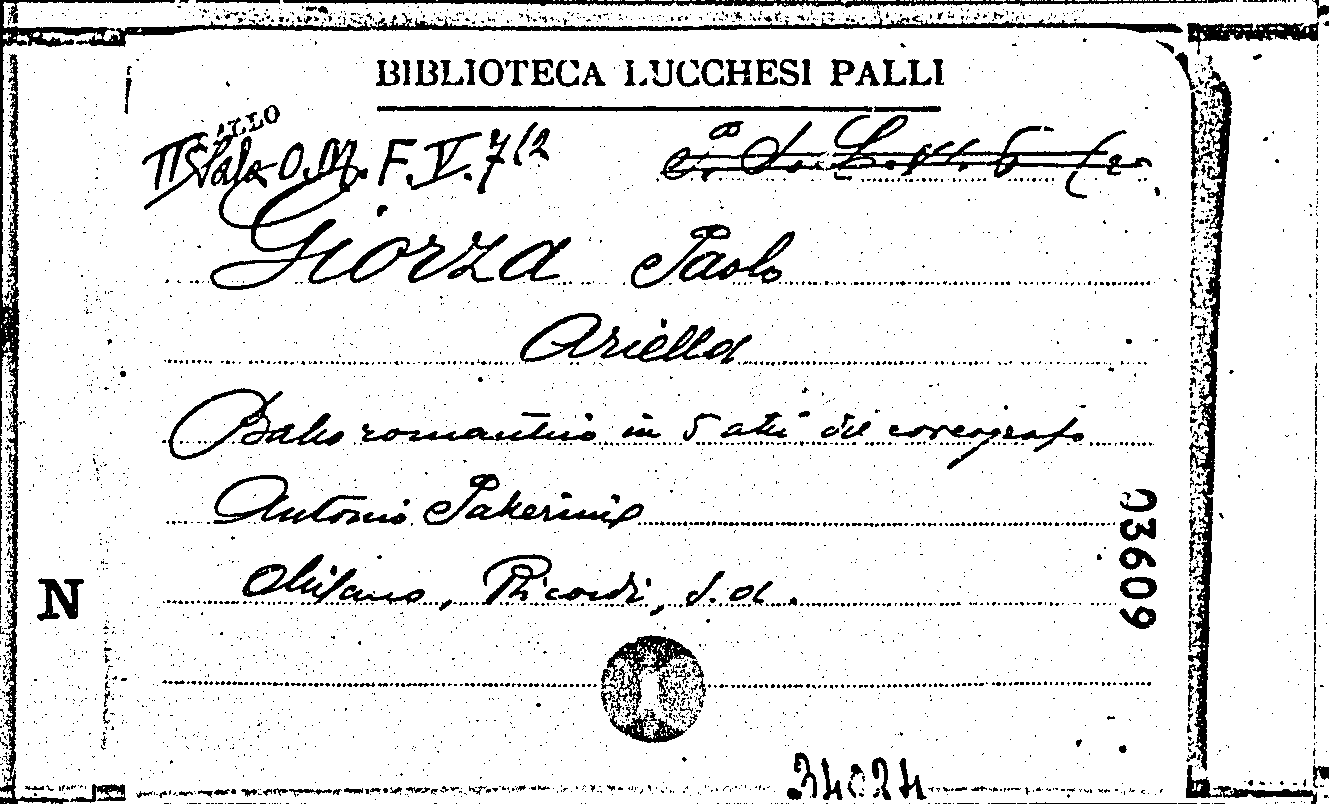 BIBLIOTECA LUCCHESI PALLI
BALLO
II Sala O.M. F.V. 7/2
Giorza Paolo
Ariella
Ballo romantico in 5 atti del coreografo
Antonio Pallerini
Milano, Ricordi, s.a.
03609
N
34024